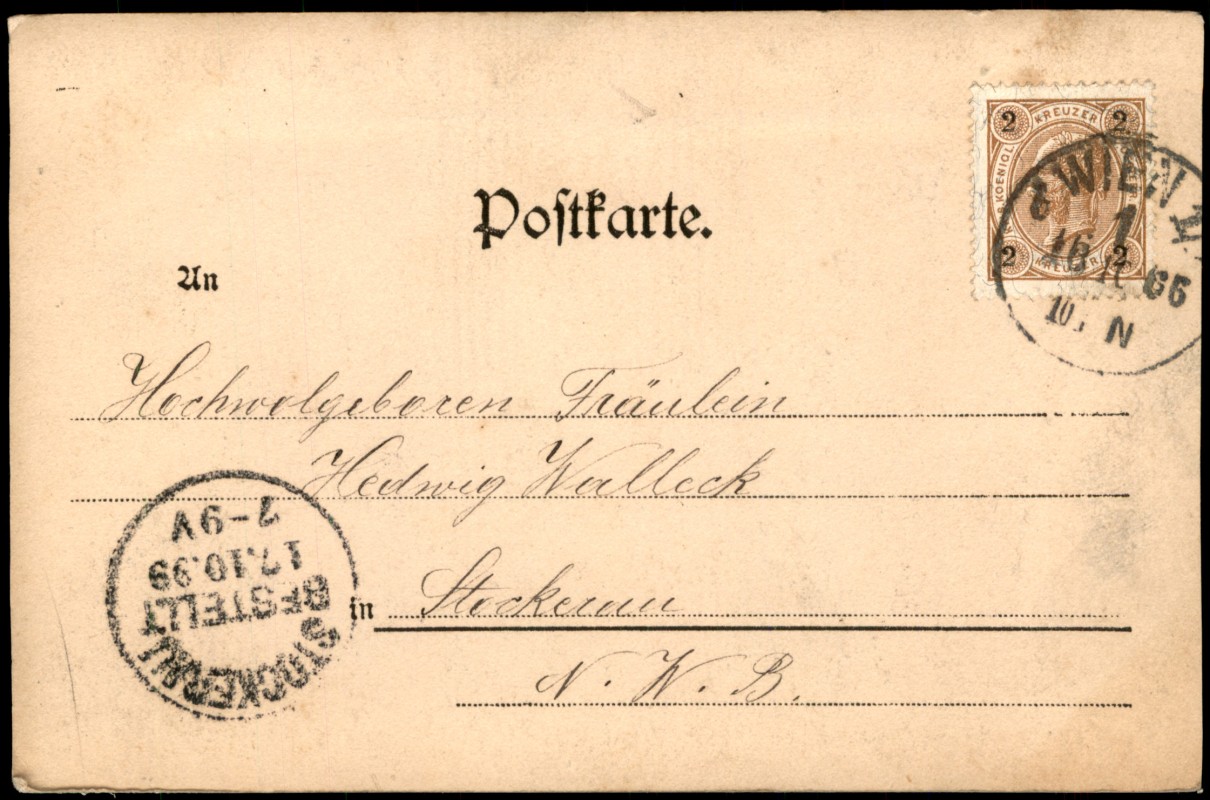 Postkarte.
2 KREUZER 2
2 KREUZER 2
WIEN 1
1
16
10. N
An
Hochwolgeboren Fräulein
Hedwig Walleck
in Stockerau
N. W. B.
STOCKERAU
BESTELLT
17.10.99
7-9V